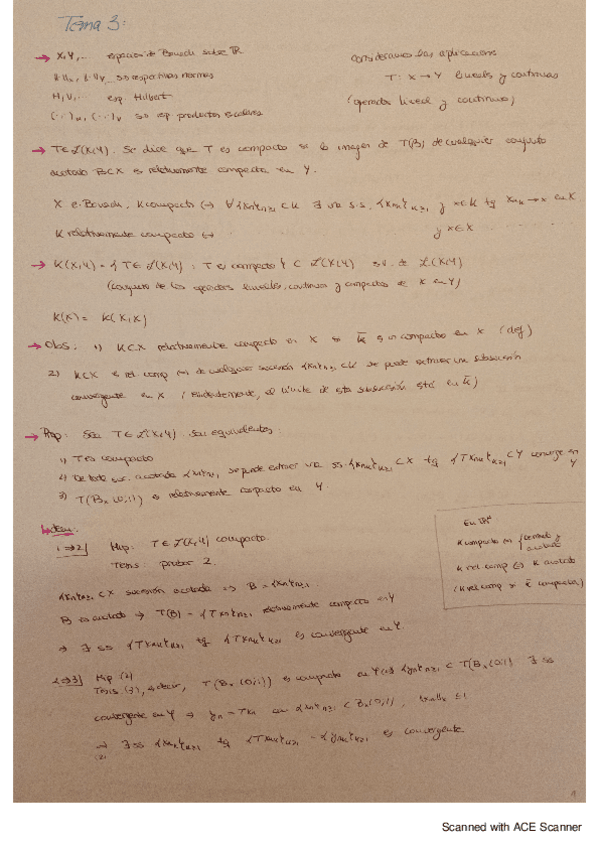 Tema 3:
→ X, Y, ... espacios de Banach sobre ℝ
Consideramos las aplicaciones
‖·‖_X, ‖·‖_Y sus respectivas normas
T: X → Y lineales y continuas
H, V, ... esp. Hilbert
(operador lineal y continuo)
(·,·)_H, (·,·)_V sus resp productos escalares
→ T∈ℒ(X,Y). Se dice que T es compacto si la imagen de T(B) de cualquier conjunto
acotado B⊂X es relativamente compacta en Y.
X e. Banach, K compacto ⇔ ∀{xn}n≥1 ⊂ K ∃ una s.s. {xnk}k≥1 y x∈K tq xnk → x en K
K relativamente compacto ⇔ y x∈X
→ K(X,Y) = { T∈ℒ(X,Y) : T es compacto } ⊂ ℒ(X,Y) s.v. de ℒ(X,Y)
(conjunto de los operadores lineales, continuos y compactos de X en Y)
K(X) = K(X,X)
→ Obs: 1) K⊂X relativamente compacto en X si K̄ es un compacto en X (def)
2) K⊂X es rel. comp ⇔ de cualquier sucesión {xn}n≥1 ⊂K se puede extraer una subsucesión
convergente en X (evidentemente, el límite de esta subsucesión está en K̄)
→ Prop: Sea T∈ℒ(X,Y). Son equivalentes:
1) T es compacto
2) De toda suc. acotada {xn}n≥1 se puede extraer una ss. {xnk}k≥1 ⊂X tq {Txnk}k≥1 ⊂Y converge en Y
3) T(B_X(0;1)) es relativamente compacto en Y.
En ℝᴺ
K compacto ⇔ { cerrado y acotado
K rel comp ⇔ K acotado
(K rel comp ⇔ K̄ compacto)
1⇒2] Hip: T∈ℒ(X,Y) compacto.
Tesis: probar 2.
{xn}n≥1 ⊂X sucesión acotada ⇒ B = {xn}n≥1
B es acotado ⇒ T(B) = {Txn}n≥1 relativamente compacto en Y
⇒ ∃ ss {Txnk}k≥1 tq {Txnk}k≥1 es convergente en Y.
2⇒3] Hip (2)
Tesis (3), es decir, T(B_X(0;1)) es compacto en Y ⇔ {yn}n≥1 ⊂ T(B_X(0;1)) ∃ ss
convergente en Y ⇒ yn = Txn con {xn}n≥1 ⊂ B_X(0;1), ‖xn‖_X ≤1
⇒ (2) ∃ ss {xnk}k≥1 tq {Txnk}k≥1 = {ynk}k≥1 es convergente.
1
Scanned with ACE Scanner